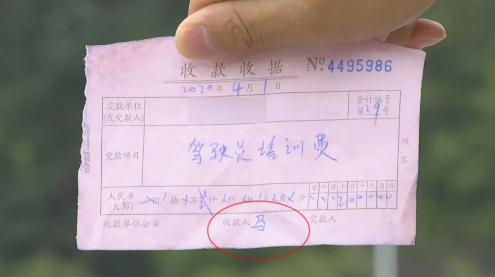 收款收据 № 4495986
2020年4月1日
交款单位
(或交款人)
会计编号
第29号
交款项目 驾驶员培训费
人民币
(大写)
百十万千百十元角分
收款单位公章 收款人 马 交款人